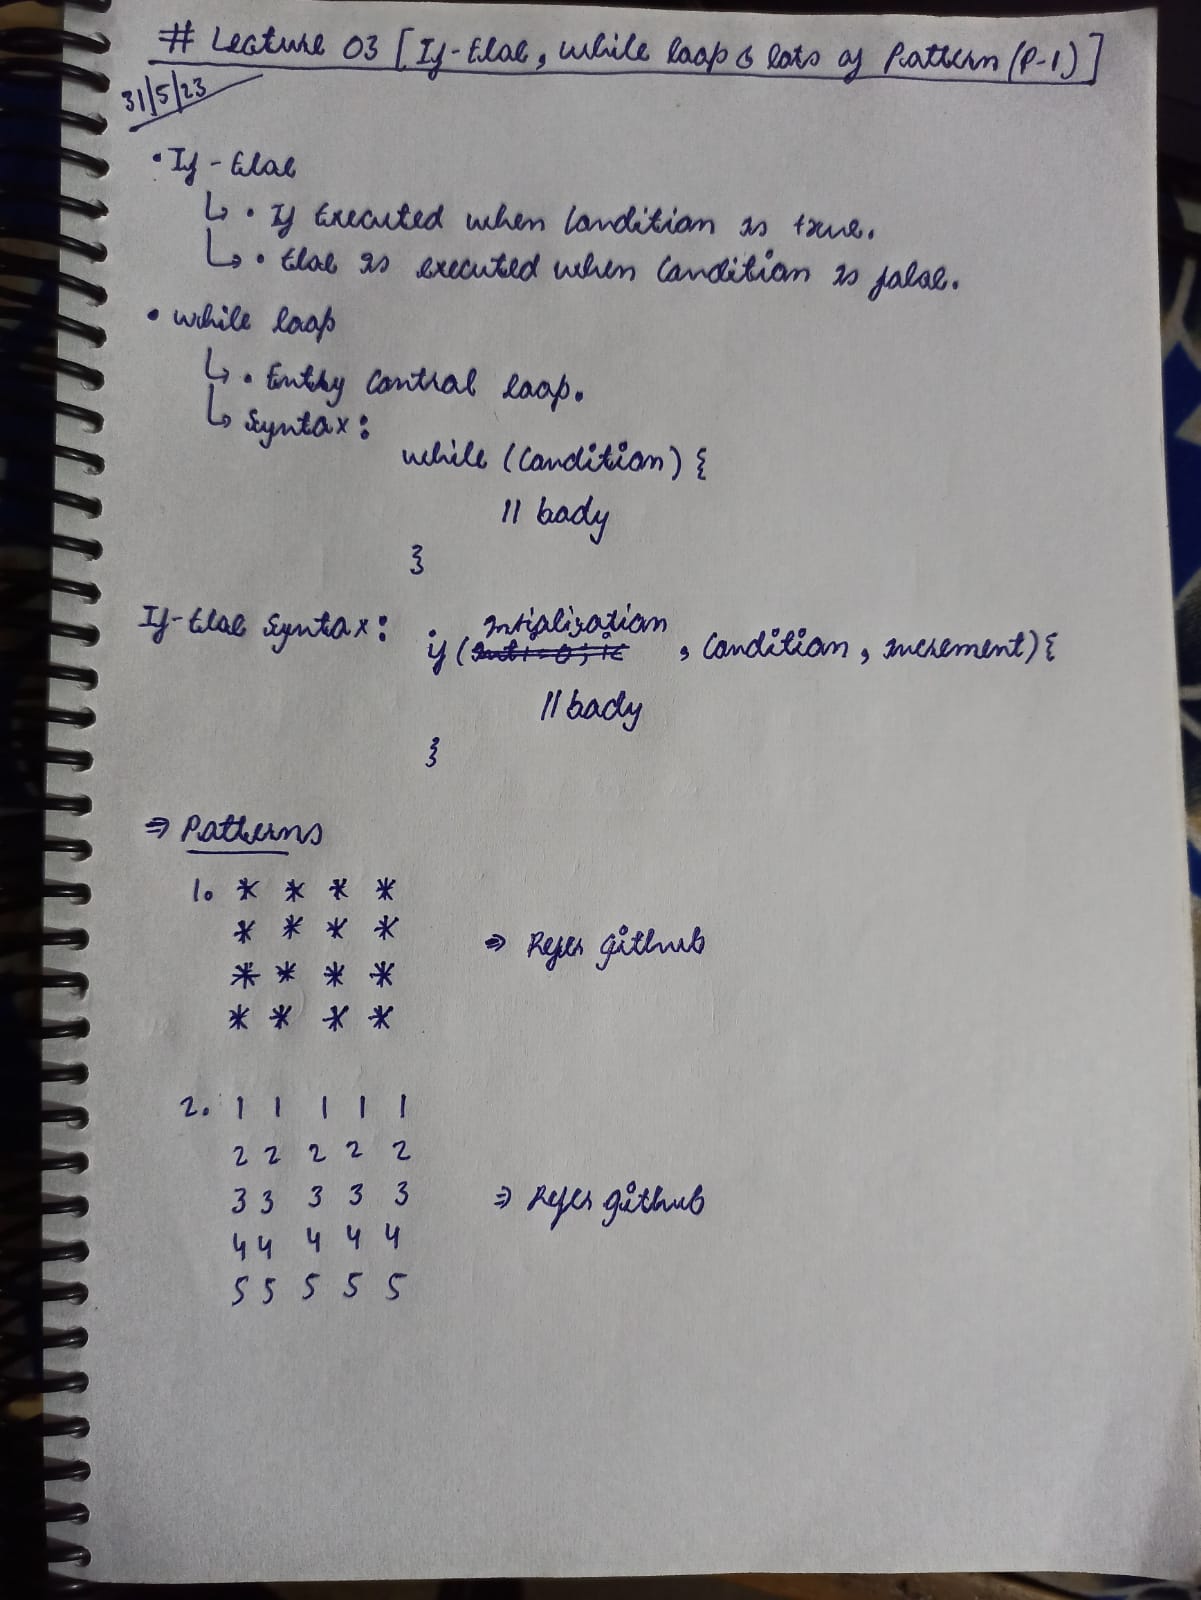 # Lecture 03 [If-Else, while loop & lots of Pattern (P-1)]
31/5/23
• If-Else
↳ • If Executed when Condition is true.
↳ • Else is executed when Condition is false.
• while loop
↳ • Entry Control loop.
↳ Syntax:
while (Condition) {
// body
}
If-Else Syntax: if (intialization, Condition, increment) {
// body
}
⇒ Patterns
1. * * * *
* * * *
* * * * ⇒ Refer github
* * * *
2. 1 1 1 1 1
2 2 2 2 2
3 3 3 3 3 ⇒ Refer github
4 4 4 4 4
5 5 5 5 5